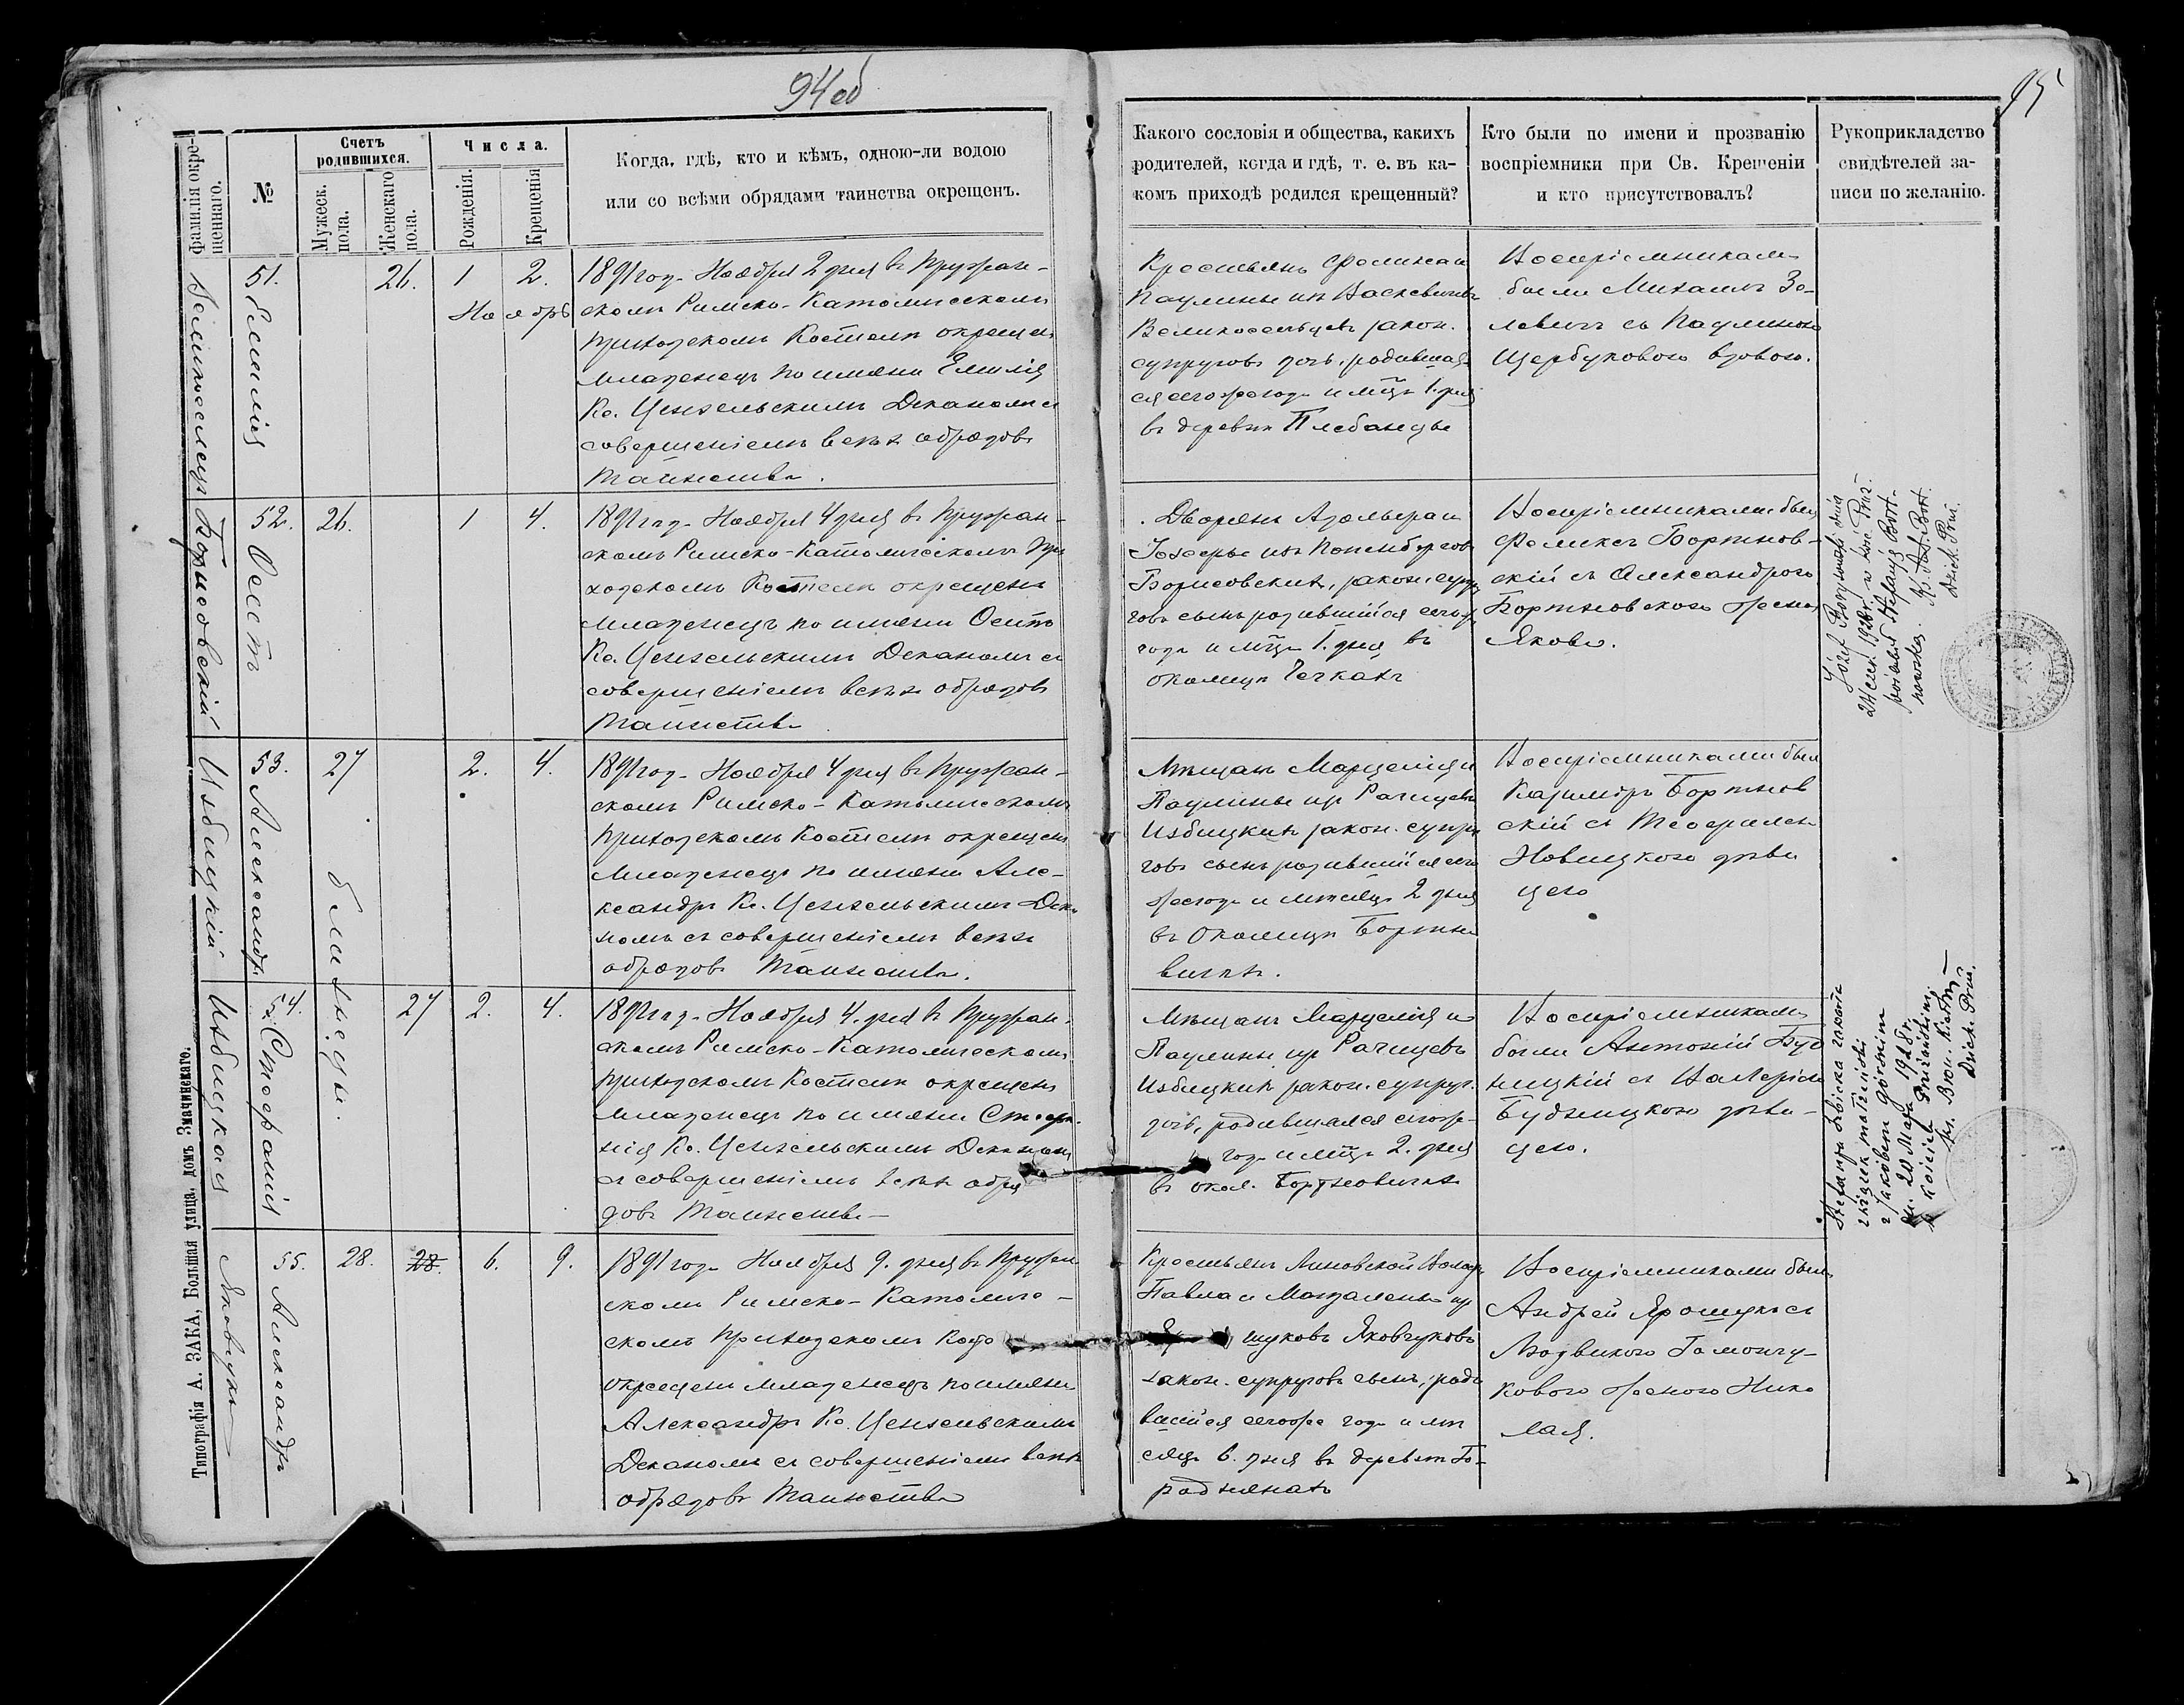 94об
95
Фамилія окре-
щеннаго.
№
Счетъ
родившихся.
Мужеск.
пола.
Женскаго
пола.
Числа.
Рожденія.
Крещенія
Когда, гдѣ, кто и кѣмъ, одною-ли водою
или со всѣми обрядами таинства окрещенъ.
Какого сословія и общества, какихъ
родителей, когда и гдѣ, т. е. въ ка-
комъ приходѣ родился крещенный?
Кто были по имени и прозванію
воспріемники при Св. Крещеніи
и кто присутствовалъ?
Рукоприкладство
свидѣтелей за-
писи по желанію.
Великоселецъ
51.
Емилія
26.
1
2.
Ноябрь
1891 год. Ноября 2 дня въ Пружан-
скомъ Римско-Католическомъ
Приходскомъ Костелѣ окрещенъ
младенецъ по имени Емилія
Кс. Цензельскимъ Деканомъ съ
совершеніемъ всѣхъ обрядовъ
Таинства.
Крестьянъ Феликса и
Паулины изъ
Великосельцевъ закон.
супруговъ дочь, родившая-
ся сего же года и мца 1. дня
въ деревнѣ Плебанцы
Воспріемниками
были Михаилъ Зе-
левичъ съ Паулиною
Щербуковою вдовою.
Борисовскій
52.
Осипъ
26.
1
4.
1891 год. Ноября 4 дня въ Пружан-
скомъ Римско-Католическомъ При
ходскомъ Костелѣ окрещенъ
младенецъ по имени Осипъ
Кс. Цензельскимъ Деканомъ съ
совершеніемъ всѣхъ обрядовъ
Таинства
Дворянъ Адольфа и
Іозефы изъ
Борисовскихъ, закон. супру
говъ сынъ родившійся сего ж
года и мца 1. дня въ
околицѣ
Воспріемниками были
Феликсъ Бортнов-
скій съ Александрою
Бортновскою женою
Якова.
Józef Borysowski dnia
1926 r. w kośc. Pruż.
poślubił Stefanję Bort-
nowską.
Dziek. Pruż.
Избицкій
53.
Александръ
27
близнецы.
2.
4.
1891 год. Ноября 4 дня въ Пружан-
скомъ Римско-Католическомъ
Приходскомъ Костелѣ окрещенъ
младенецъ по имени Але-
ксандръ Кс. Цензельскимъ Дека
номъ съ совершеніемъ всѣхъ
обрядовъ Таинства.
Мѣщанъ Марцелія и
Паулины изъ Рачицевъ
Избицкихъ закон. супру
говъ сынъ родившійся сего
же года и мѣсяца 2 дня
въ Околицѣ Бортно
вичахъ.
Воспріемниками были
Казиміръ Бортнов
скій съ Теофилею
Новицкою дѣви
цею
Избицкая
54.
Стефанія
27
2.
4.
1891 год. Ноября 4. дня въ Пружан-
скомъ Римско-Католическомъ
Приходскомъ Костелѣ окрещенъ
младенецъ по имени Стефа-
нія Кс. Цензельскимъ Деканомъ
съ совершеніемъ всѣхъ обря
довъ Таинства
Мѣщанъ Марцелія и
Паулины изъ Рачицевъ
Избицкихъ закон. супруг.
дочь, родившаяся сего же
года и мца 2. дня
въ окол. Бортновичахъ
Воспріемниками
были Антоній Буд
ницкій съ Валеріею
Будницкою дѣви-
цею.
Stefanja Izbicka zawarła
związek małżeński
z Jakóbem Górskim
dn. 20 Maja 1928 r.
w kościele Prużańskim.
Dziek. Pruż.
Яковчукъ
55.
Александръ
28.
28.
6.
9.
1891 года Ноября 9. дня въ Пружан
скомъ Римско-Католиче-
скомъ Приходскомъ Косте
окрещенъ младенецъ по имени
Александръ Кс. Цензельскимъ
Деканомъ съ совершеніемъ всѣхъ
обрядовъ Таинства
Крестьянъ Линовской Волос
Павла и Магдалены изъ
щуковъ Яковчуковъ
закон. супруговъ сынъ, роди
вшійся сего же года и мѣ
сяца 6. дня въ деревнѣ Го-
роднянахъ
Воспріемниками были
Андрей Ярощукъ съ
Людвикою Гамончу-
ковою женою Нико
лая.
Типографія А. ЗАКА, Большая улица, домъ Значинскаго.